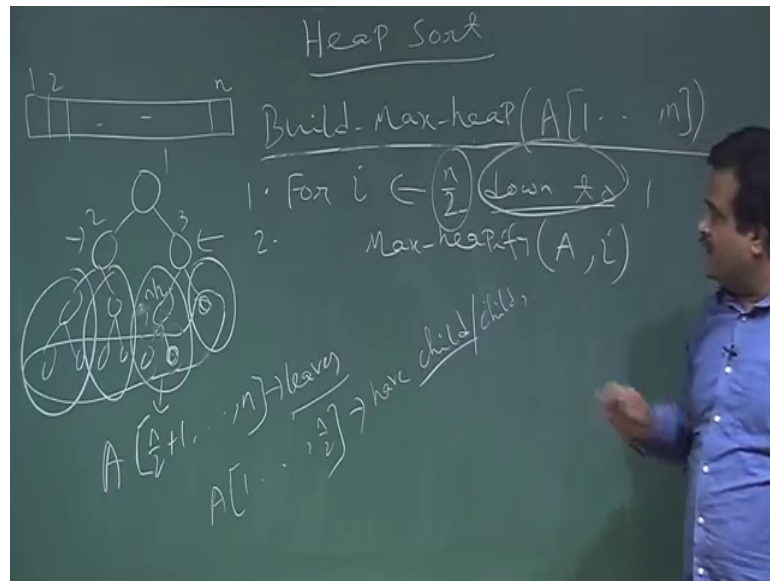 Heap Sort
1 2 n
Build-Max-heap(A[1 . . ,n])
1. For i ← n/2 down to 1
2. Max-heapify(A, i)
1
2 3
n/2
A[n/2+1, . . ,n] → leaves
A[1 . . , n/2] → have child/child,